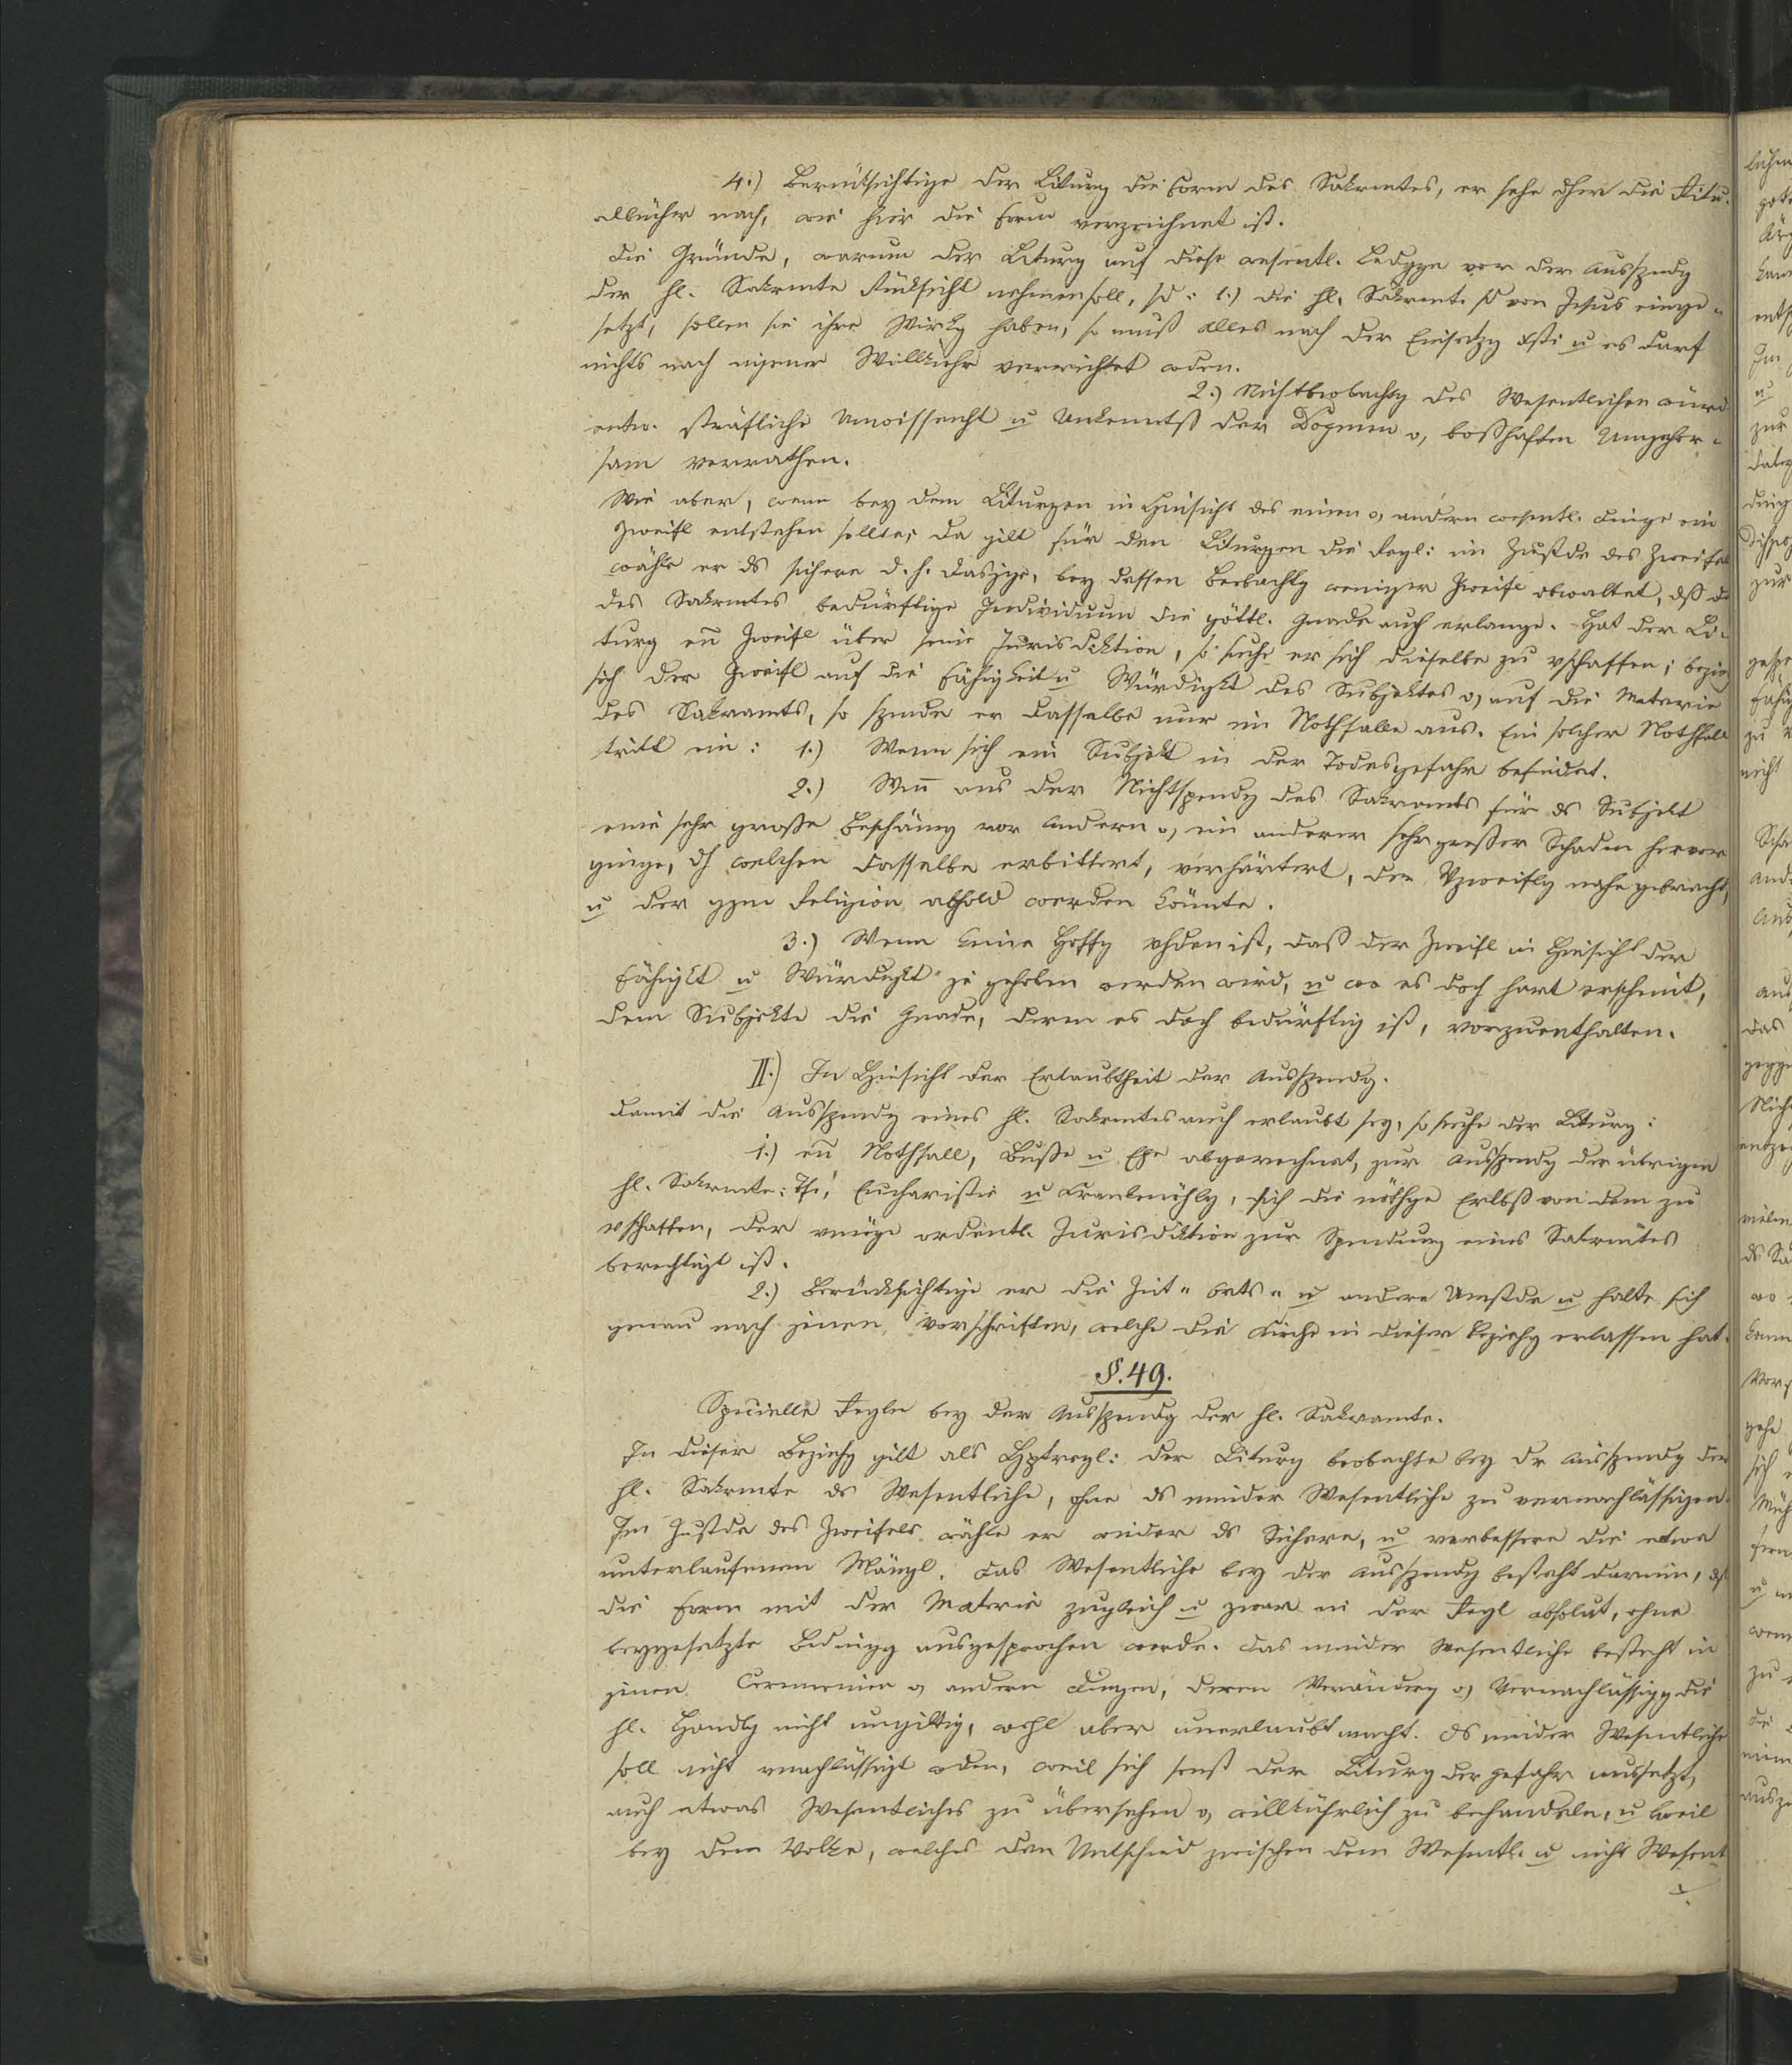 4.) Berücksichtige der Liturg die Form des Sakrmtes, er sehe dher die Ritu-
albücher nach, wie hier die Form verzeichnet ist.
Die Gründe, warum der Liturg auf diese wesentl. Bedggn vor der Ausspendg
der hl. Sakrmte Rücksicht nehmen soll, sd: 1.) die hl. Sakrmte sd von Jesus einge-
setzt, sollen sie ihre Wirkg haben, so muß alles nach der Einsetzg u es darf
nichts nach eigener Willkühr verrichtet wden.
2.) Nichtbeobachtg des Wesentlichen würd
entw. sträfliche Unwissenht u Unkenntß der Dogmen o, boßhaften Ungehor-
sam verrathen.
Wie aber, wenn bey dem Liturgen in Hinsicht des einen o, andern wesentl. Dinge ein
Zweifl entstehen sollte; da gilt für den Liturgen die Regl: im Zustde des Zweifels
wähle er ds sichere d. h. dasjge, bey dessen Beobachtg weniger Zweifl obwaltet, dß d
des Sakrmtes bedürftige Individuum die göttl. Gnade auch erlange. Hat der Li-
turg en̄ Zweifl über seine Jurisdiktion, so suche er sich dieselbe zu vschaffen; bezieh
sich der Zweifl auf die Fähigkeit u Würdigkt des Subjektes o, auf die Materie
des Sakramts, so spende er dasselbe nur im Nothfalle aus. Ein solcher Nothfall
tritt ein: 1.) Wenn sich ein Subjekt in der Todesgefahr befindet.
2.) Wen̄ aus der Nichtspendg des Sakramts für ds Subjekt
eine sehr große Beschämg vor Andern o, ein anderer sehr großer Schaden hervor
ginge, dch welchen dasselbe erbittert, verhärtert, der Vzweiflg nahe gebracht,
u der gzen Religion abhold werden könnte.
3.) Wenn keine Hoffg vhden ist, daß der Zweifl in Hinsicht der
Fähigkt u Würdigkt je gehoben werden wird, u wo es doch hart erscheint,
dem Subjekte die Gnade, deren es doch bedürftig ist, vorzuenthalten.
II.) In Hinsicht der Erlaubtheit der Ausspendg.
Damit die Ausspendg eines hl. Sakrmtes auch erlaubt sey, so suche der Liturg:
1.) en̄ Nothfall, Buße u Ehe abgerechnet, zur Ausspendg der übrigen
hl. Sakrmte: Tfe, Eucharistie u Krankenöhlg, sich die nöthge Erlbß von dem zu
vschaffen, der vmöge ordentl. Jurisdiktion zur Spendung eines Sakrmtes
berechtigt ist.
2.) Berücksichtige er die Zeit- Orts- u andere Umstde u halte sich
genau nach jenen Vorschriften, welche die Kirche in dieser Beziehg erlassen hat.
§. 49.
Specielle Regln bey der Ausspendg der hl. Sakramte.
In dieser Beziehg gilt als Hptregl: der Liturg beobachte bey dr Ausspendg der
hl. Sakrmte ds Wesentliche, ohne ds minder Wesentliche zu vernachlässigen.
Im Zustde des Zweifels wähle er wieder ds Sichere, u verbessere die etwa
unterlaufenen Mängl. Das Wesentliche bey der Ausspendg besteht darinn, dß
die Form mit der Materie zugleich u zwar in der Regl absolut, ohne
beygesetzte Bedingg ausgesprochen werde. Das minder Wesentliche besteht in
jenen Ceremonien o, andern Dingen, deren Veränderg o, Vernachlässigg die
hl. Handlg nicht ungiltig, wohl aber unerlaubt macht. Ds minder Wesentliche
soll nicht vnachlässigt wden, weil sich sonst der Liturg der Gefahr aussetzt,
auch etwas Wesentliches zu übersehen o, willkührlich zu behandeln, u weil
bey dem Volke, welches den Untschied zwischen dem Wesentl. u nicht Wesent